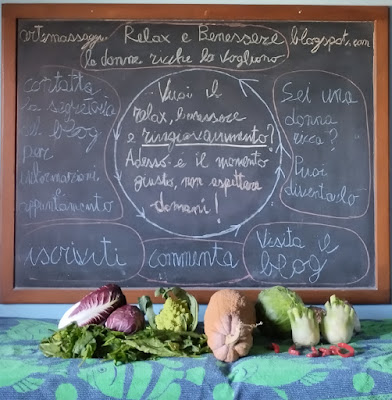 artemassaggi Relax e Benessere blogspot.com
le donne ricche lo vogliono
contatta
la segretaria
del blog
per
informazioni
e
appuntamento
Vuoi il
relax, benessere
e ringiovanimento?
Adesso è il momento
giusto, non aspettare
domani!
Sei una
donna
ricca?
Puoi
diventarlo
iscriviti
commenta
Visita il
blog